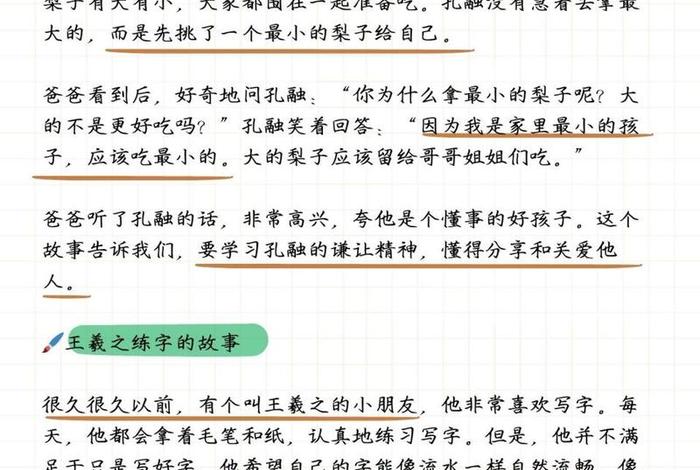 梨子有大有小，大家都围在一起准备吃。孔融没有急着去拿最
大的，而是先挑了一个最小的梨子给自己。
爸爸看到后，好奇地问孔融：“你为什么拿最小的梨子呢？大
的不是更好吃吗？”孔融笑着回答：“因为我是家里最小的孩
子，应该吃最小的。大的梨子应该留给哥哥姐姐们吃。”
爸爸听了孔融的话，非常高兴，夸他是个懂事的好孩子。这个
故事告诉我们，要学习孔融的谦让精神，懂得分享和关爱他
人。
王羲之练字的故事
很久很久以前，有个叫王羲之的小朋友，他非常喜欢写字。每
天，他都会拿着毛笔和纸，认真地练习写字。但是，他并不满
足于只是写好字，他希望自己的字能像流水一样自然流畅，像